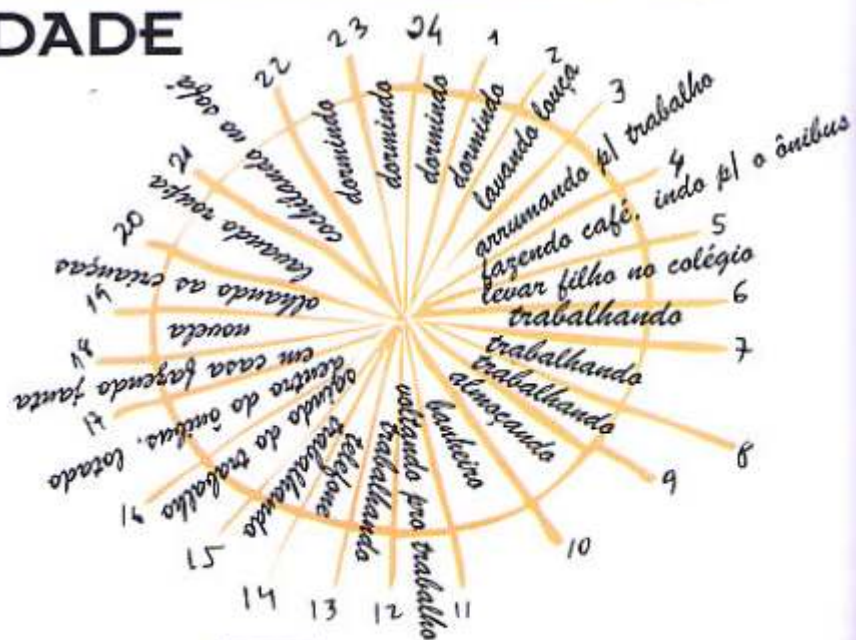 DADE
24
dormindo
1
dormindo
2
lavando louça
3
arrumando p/ trabalho
4
fazendo café, indo p/ o ônibus
5
levar filho no colégio
6
trabalhando
7
trabalhando
8
trabalhando
9
almoçando
10
banheiro
11
voltando pro trabalho
12
trabalhando
13
telefone
14
trabalhando
15
saindo do trabalho
16
dentro do ônibus, lotado
17
em casa fazendo janta
18
novela
19
olhando as crianças
20
lavando roupa
21
cochilando no sofá
22
dormindo
23
dormindo